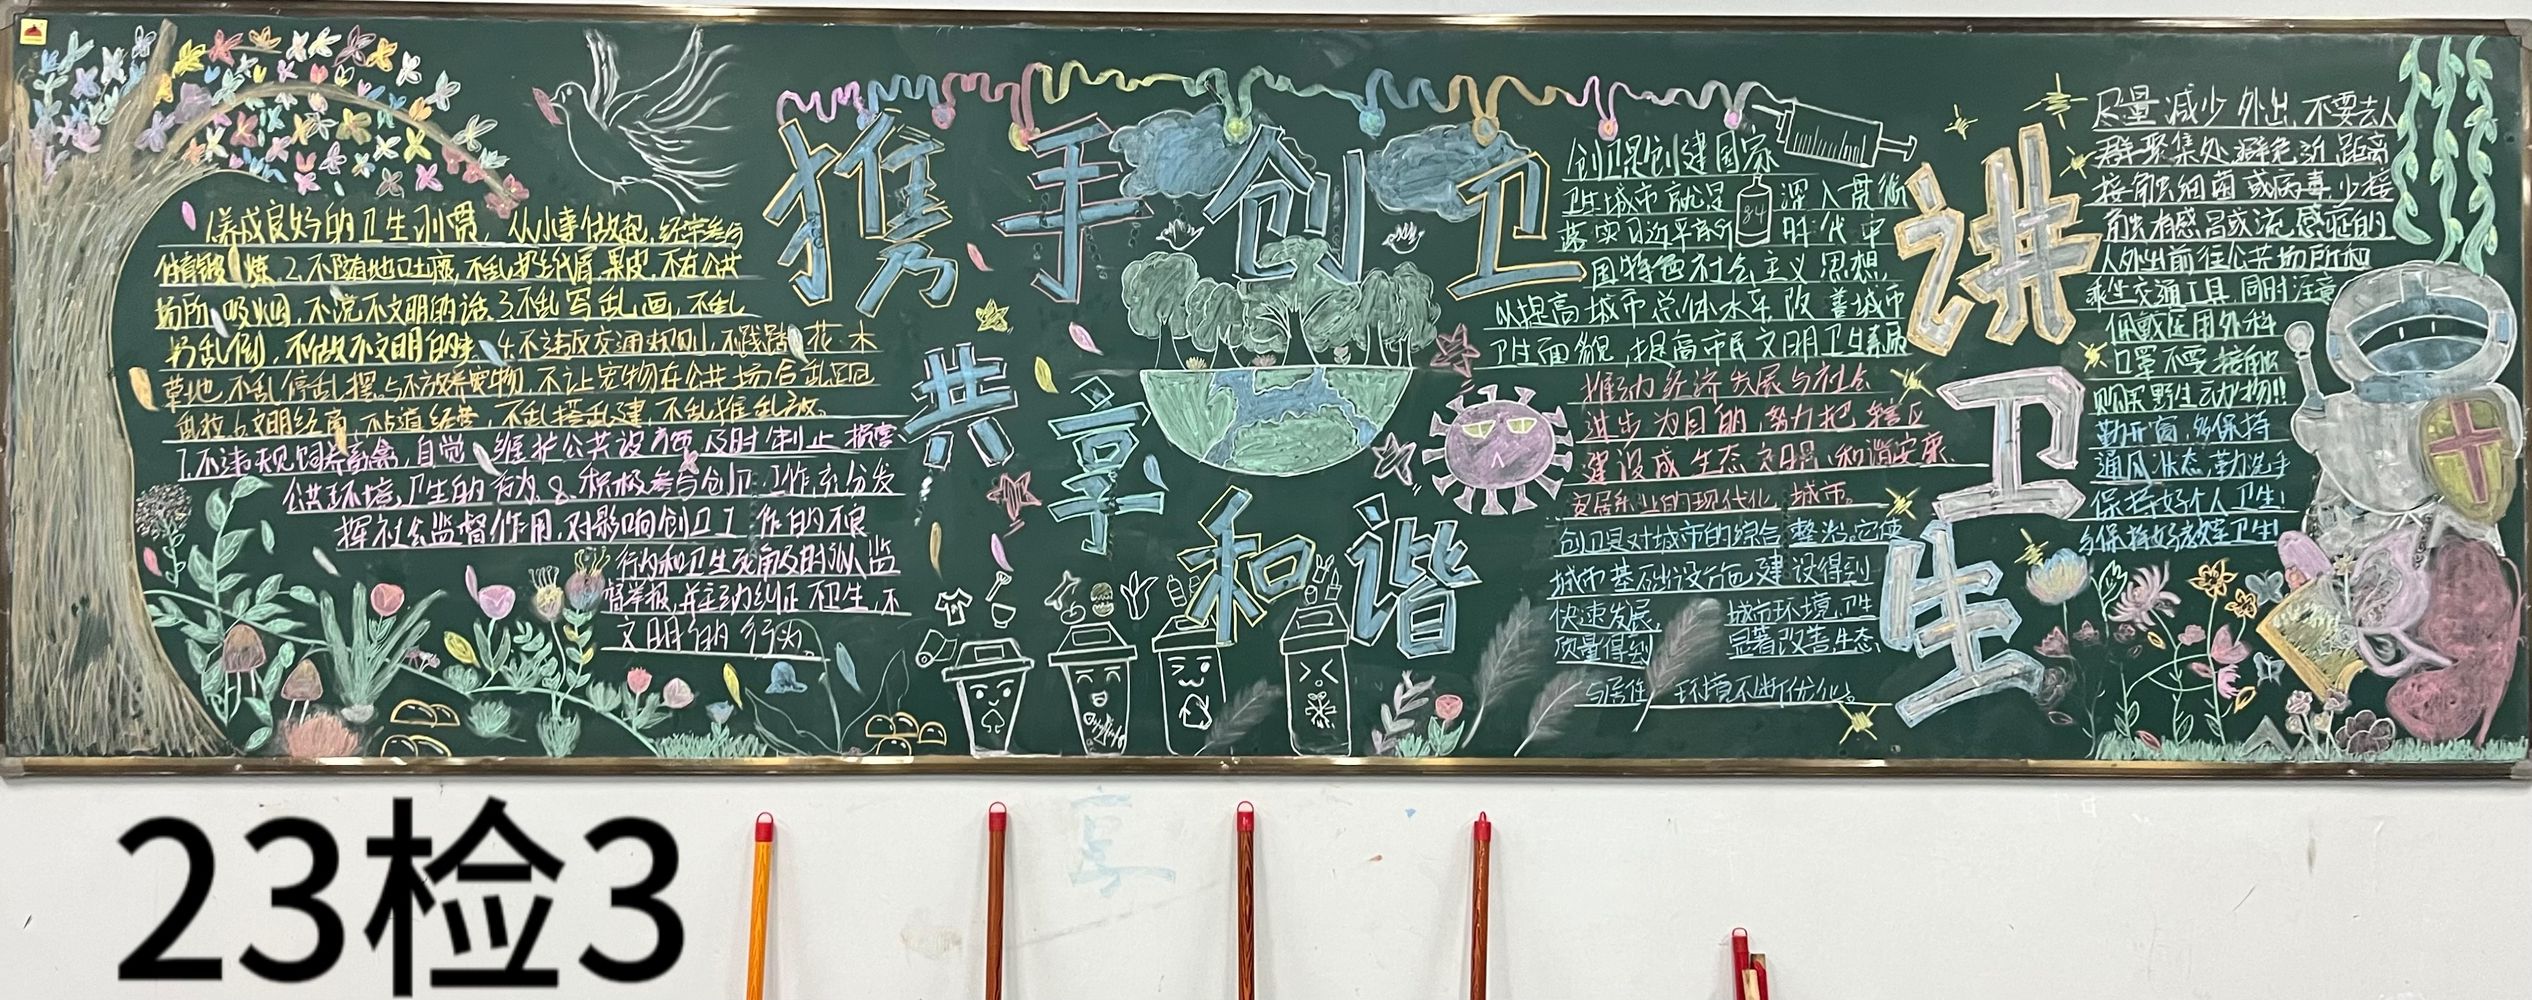 携手创卫
共享
和谐
讲卫生
养成良好的卫生习惯，从小事做起，经常参与
体育锻炼。2.不随地吐痰，不乱扔纸屑、果皮，不在公共
场所吸烟，不说不文明的话。3.不乱写乱画，不乱
扔乱倒，不做不文明的事。4.不违反交通规则，不践踏花木
草地，不乱停乱摆。5不放养宠物，不让宠物在公共场合乱跑
乱拉。6.文明经商，不占道经营，不乱搭乱建，不乱堆乱放。
7.不违规饲养家禽，自觉维护公共设施，及时制止损害
公共环境卫生的行为。8.积极参与创卫工作，充分发
挥社会监督作用，对影响创卫工作的不良
行为和卫生死角及时纳入监
督举报，并主动纠正不卫生，不
文明的行为。
创卫是创建国家
卫生城市就是深入贯彻
落实习近平新时代中
国特色社会主义思想，
以提高城市总体水平，改善城市
卫生面貌，提高市民文明卫生素质
推动经济发展与社会
进步为目的，努力把辖区
建设成生态、文明、和谐安康、
宜居乐业的现代化城市。
创卫是对城市的综合整治。它使
城市基础设施建设得到
快速发展，城市环境卫生
质量得到显著改善，生态
与居住环境不断优化。
84
尽量减少外出，不要去人
群聚集处避免近距离
接触细菌或病毒少接
触有感冒或流感症的
人外出前往公共场所和
乘坐交通工具，同时注意
佩戴医用外科
口罩不要接触
购买野生动物!!
勤开窗，多保持
通风状态，勤洗手
保持好个人卫生!
多保持好教室卫生!
23检3